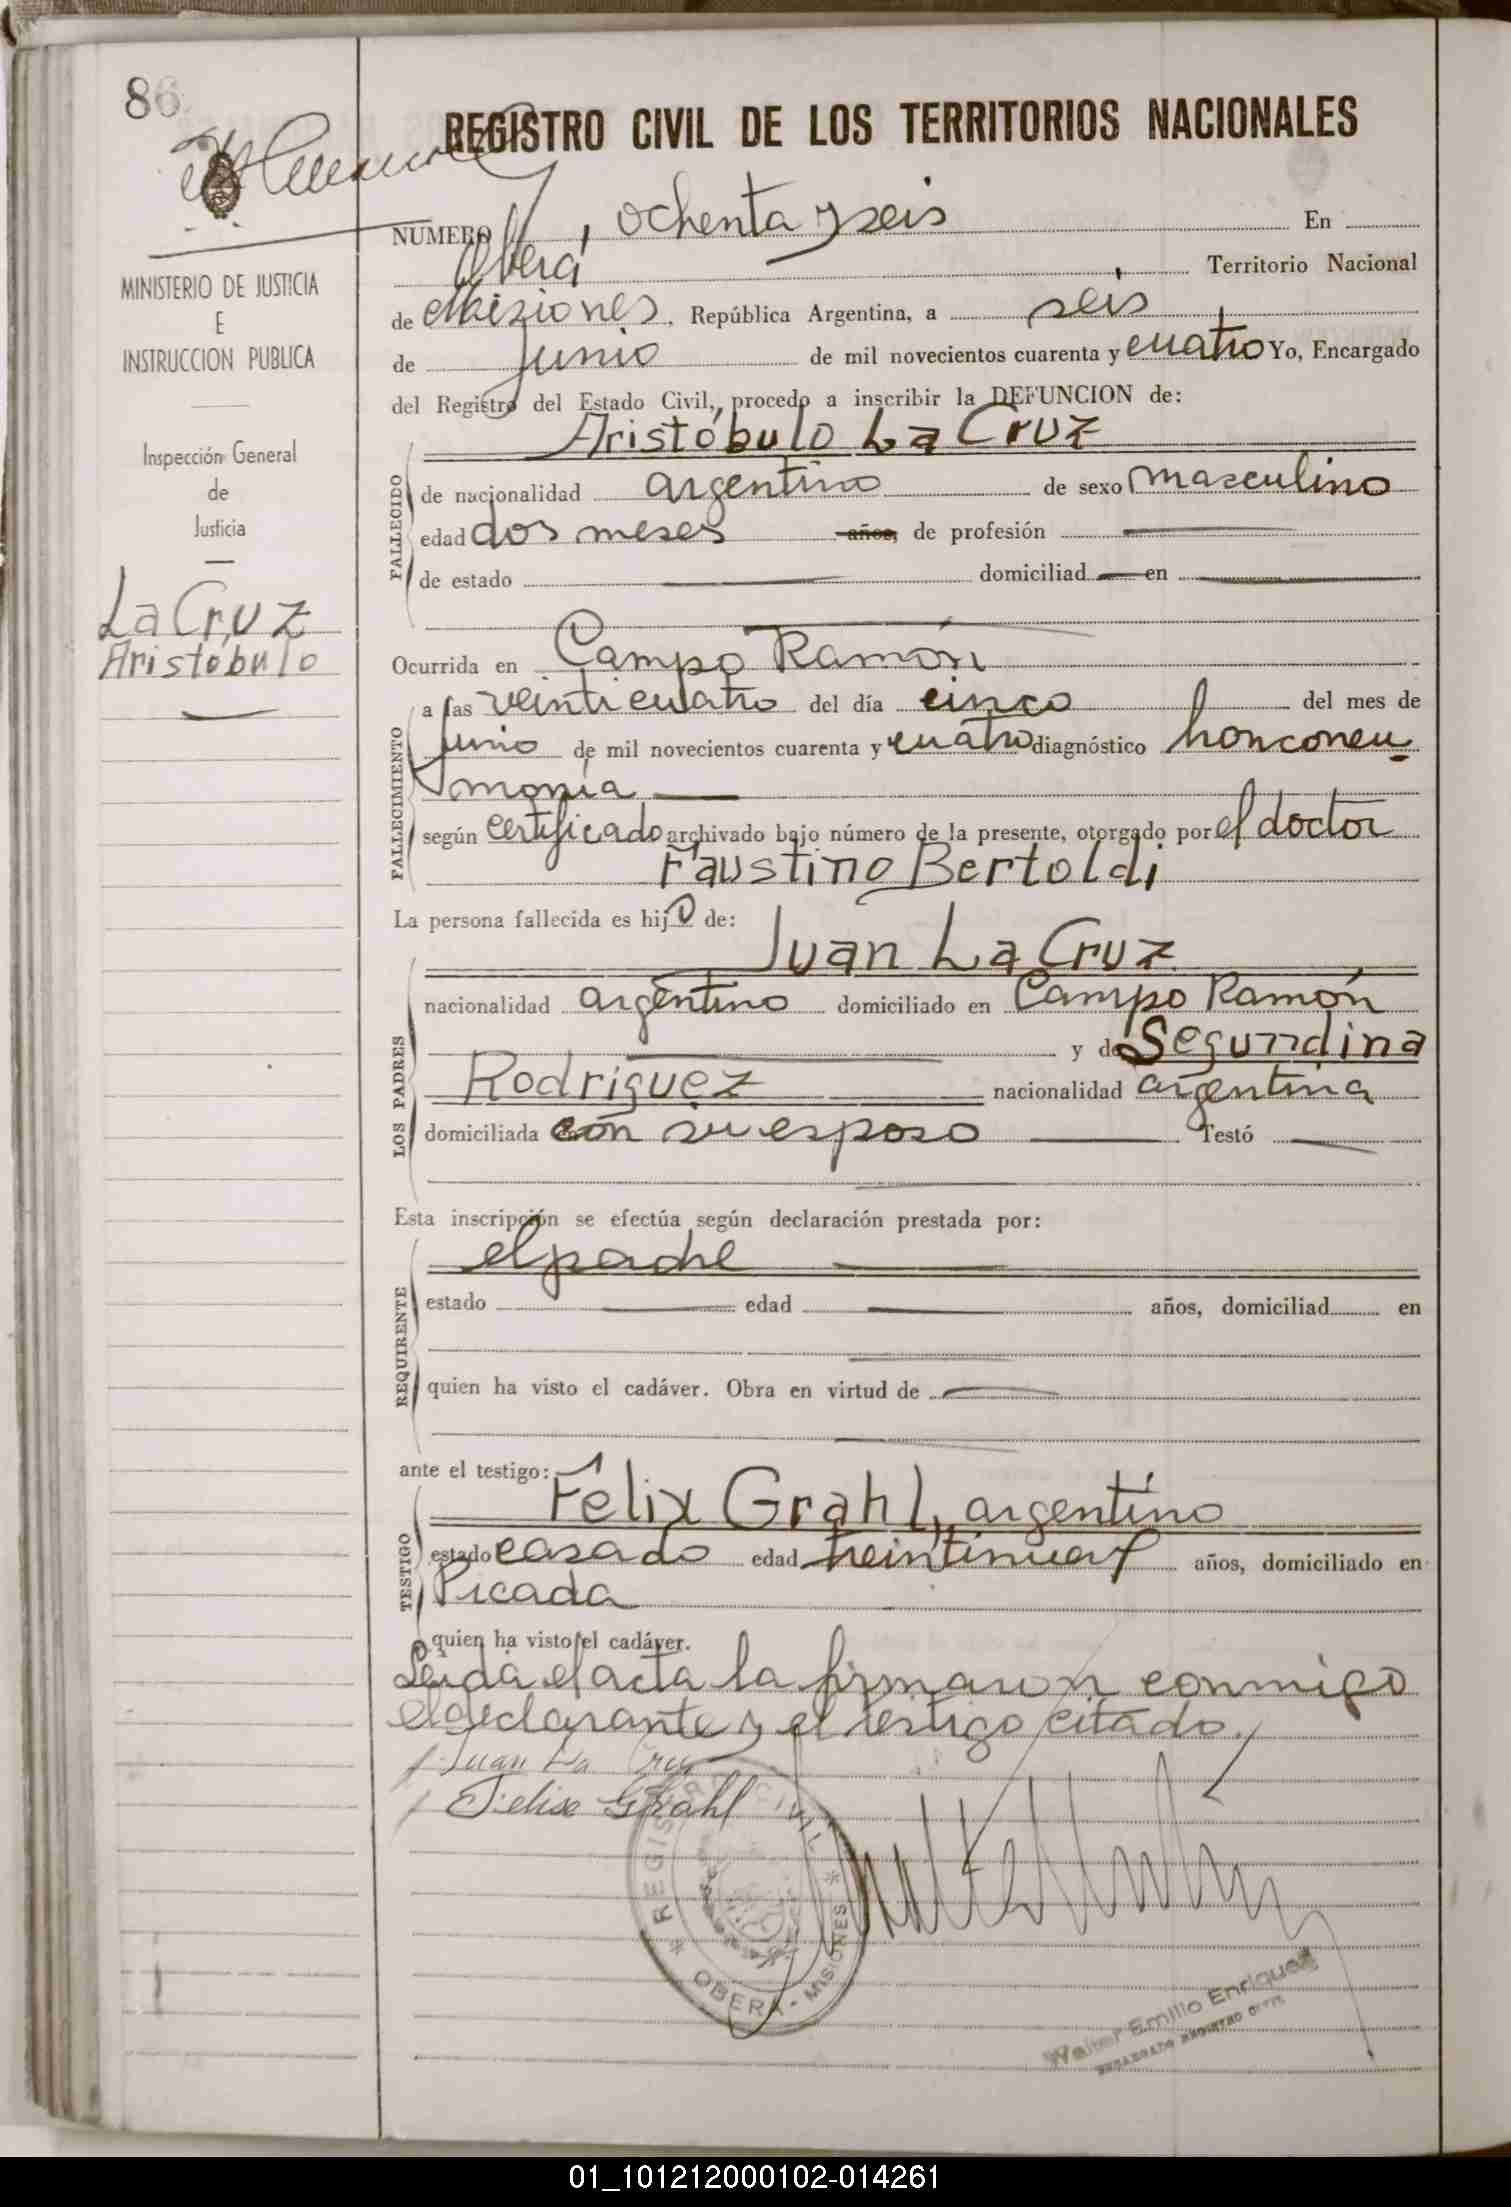 86
REGISTRO CIVIL DE LOS TERRITORIOS NACIONALES
NUMERO ochenta y seis En
Oberá, Territorio Nacional
de Misiones, República Argentina, a seis
de Junio de mil novecientos cuarenta y cuatro Yo, Encargado
del Registro del Estado Civil, procedo a inscribir la DEFUNCION de:
Aristóbulo La Cruz
FALLECIDO
de nacionalidad argentino de sexo masculino
edad dos meses años, de profesión
de estado domiciliad en
Ocurrida en Campo Ramón
FALLECIMIENTO
a las veinticuatro del día cinco del mes de
junio de mil novecientos cuarenta y cuatro diagnóstico bronconeu
monía
según certificado archivado bajo número de la presente, otorgado por el doctor
Faustino Bertoldi
La persona fallecida es hijo de:
Juan La Cruz
LOS PADRES
nacionalidad argentino domiciliado en Campo Ramón
y de Segundina
Rodriguez nacionalidad argentina
domiciliada con su esposo Testó
Esta inscripción se efectúa según declaración prestada por:
el padre
REQUIRENTE
estado edad años, domiciliad en
quien ha visto el cadáver. Obra en virtud de
ante el testigo:
Félix Grahl, argentino
TESTIGO
estado casado edad treintinueve años, domiciliado en
Picada
quien ha visto el cadáver.
Leída el acta la firmaron conmigo
el declarante y el testigo citado.
Juan La Cruz
Felix Grahl
REGISTRO CIVIL
OBERA - MISIONES
Walter Emilio Enriquez
ENCARGADO REGISTRO CIVIL
MINISTERIO DE JUSTICIA
E
INSTRUCCION PUBLICA
Inspección General
de
Justicia
La Cruz
Aristóbulo
01_101212000102-014261